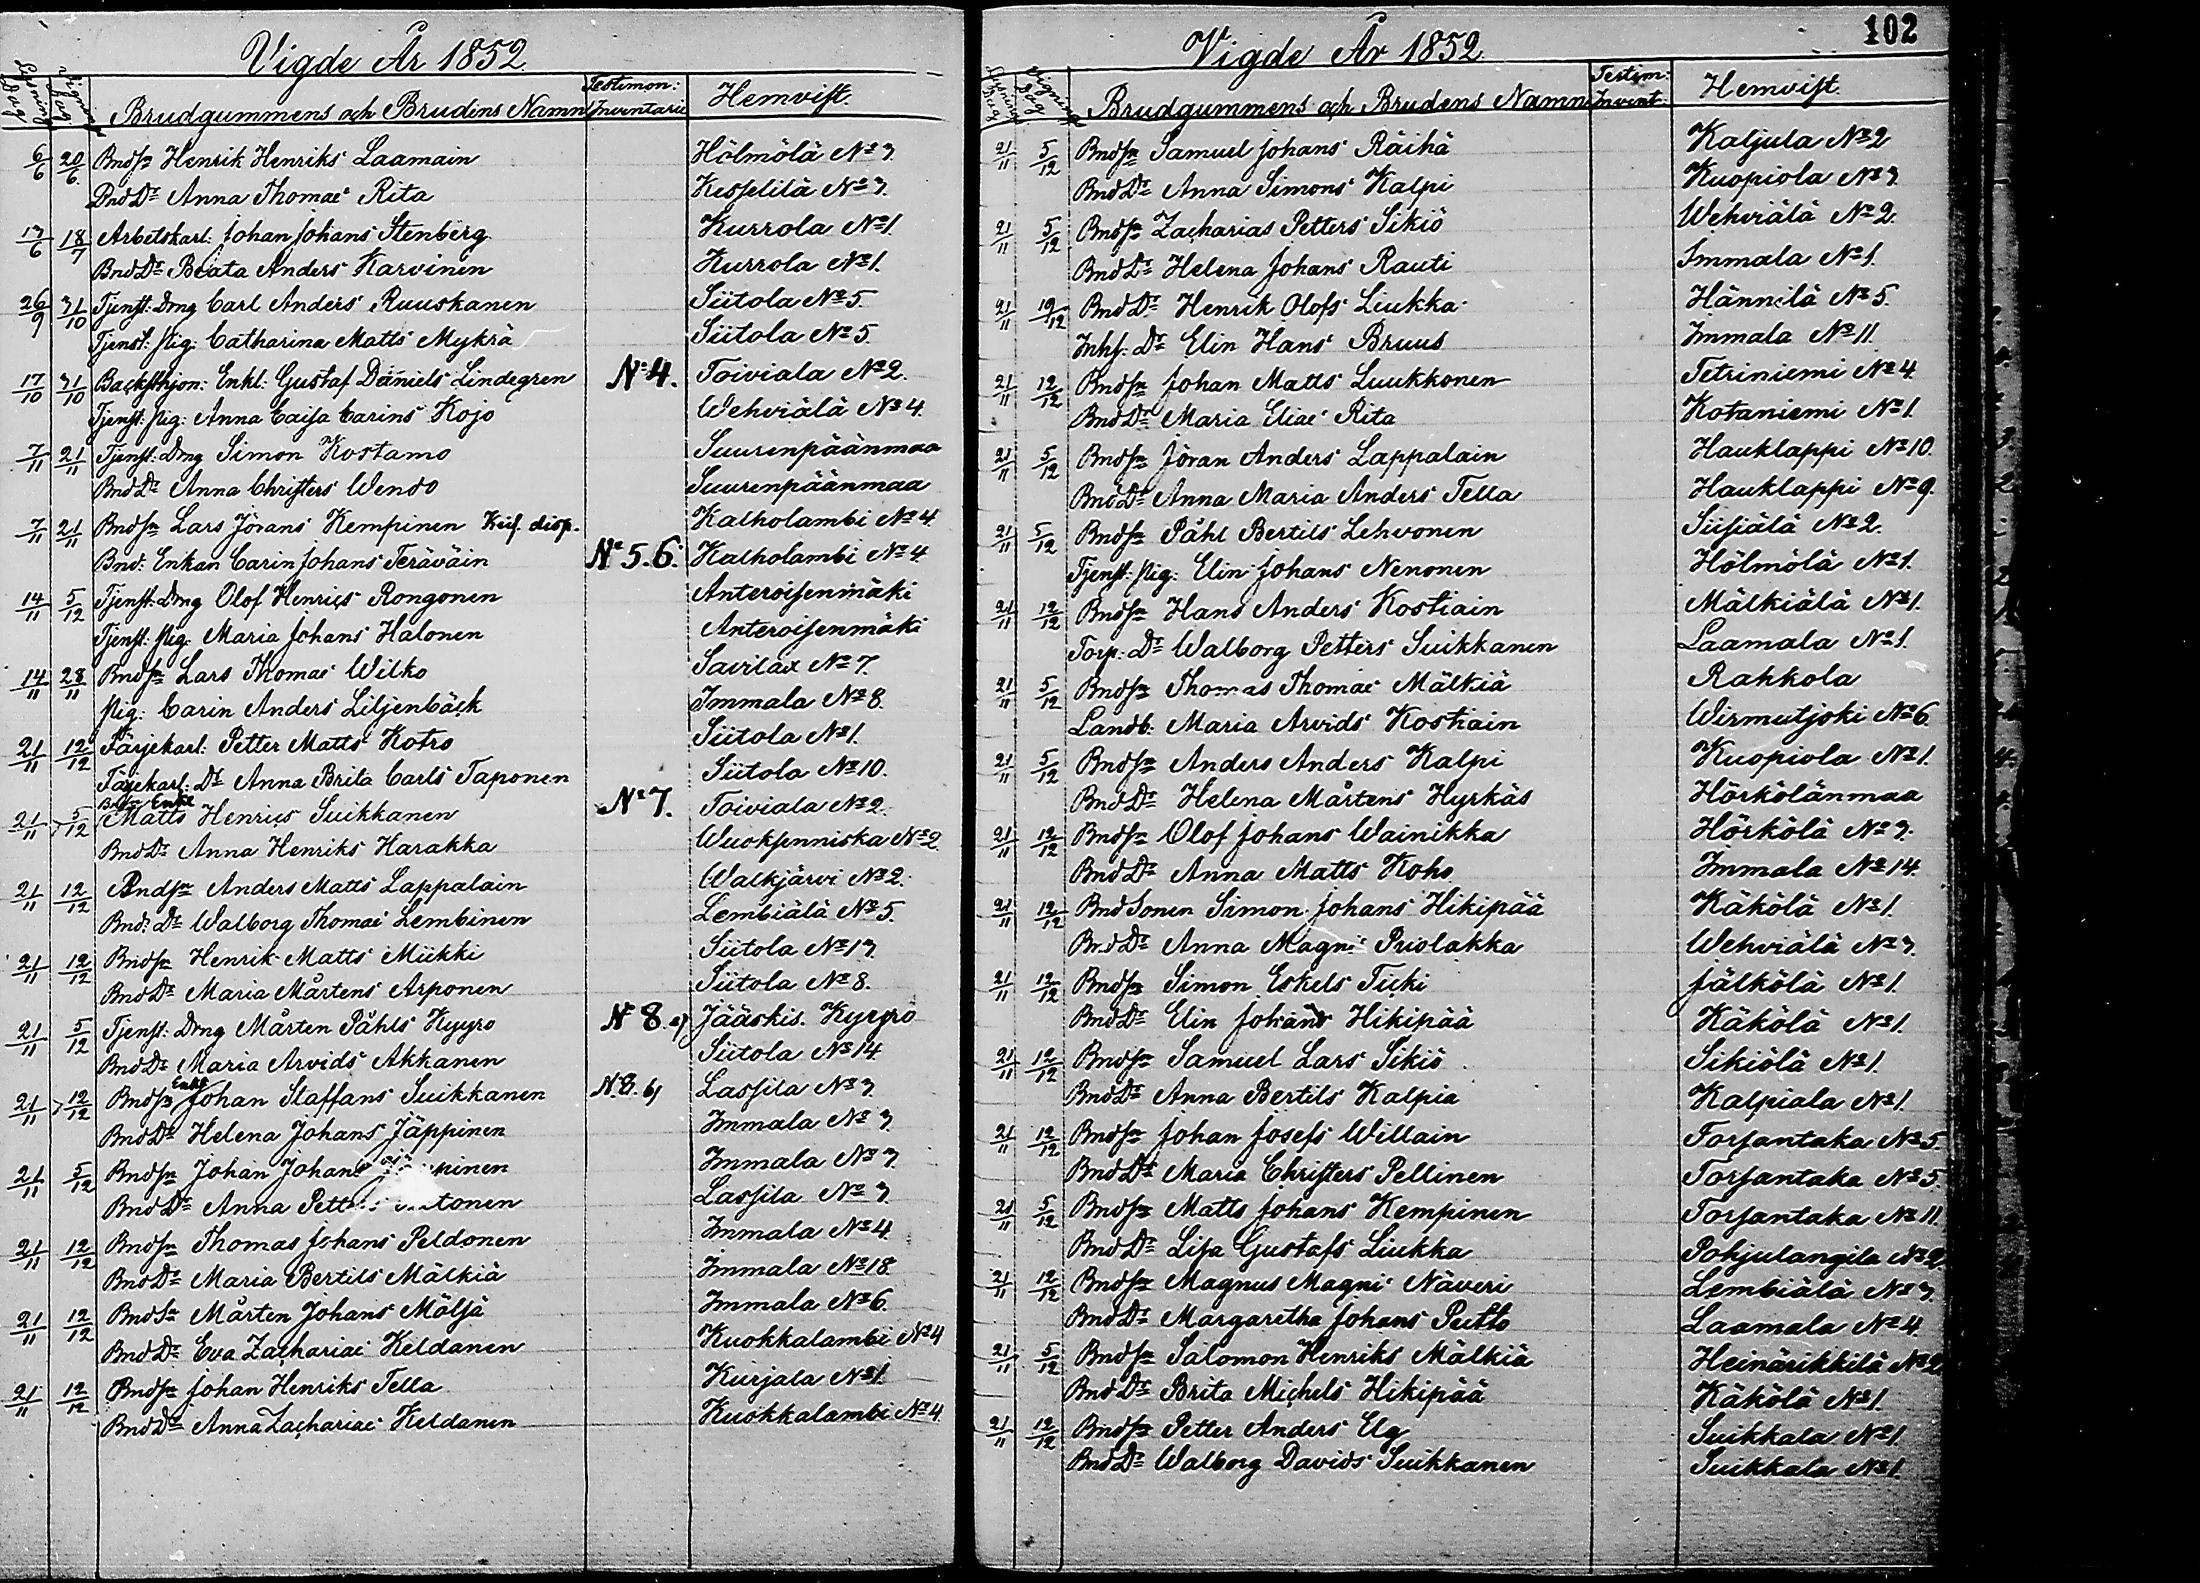 Vigde År 1852.
Lysnings Dag
Vignings Dag
Brudgummens och Brudens Namn
Testimon: Inventarie
Hemvist.
6/6 20/6. Bndsn Henrik Henriks Laamain Hölmölä No 3.
BndDr Anna Thomae Rita Kesselilä No 3.
13/6 18/7 Arbetskarl: Johan Johans Stenberg Kurrola No 1.
BndDr Beata Anders Karvinen Kurrola No 1.
26/9 31/10 Tjenst: Drng Carl Anders Ruuskanen Siitola No 5.
Tjenst: Pig: Catharina Matts Mykrä Siitola No 5.
17/10 31/10 Backsthjon: Enkl: Gustaf Daniels Lindegren No 4. Toiviala No 2.
Tjenst: Pig: Anna Caisa Carins Kojo Wehviälä No 4.
7/11 21/11 Tjenst: Drng Simon Kostamo Suurenpäänmaa
BndDr Anna Christers Wendo Suurenpäänmaa
7/11 21/11 Bndsn Lars Jörans Kempinen Keis. disp. Kalholambi No 4.
Bnd: Enkan Carin Johans Teräväin No 5. 6. Kalholambi No 4.
14/11 5/12 Tjenst: Drng Olof Henrics Rongonen Anteroisenmäki
Tjenst: Pig: Maria Johans Halonen Anteroisenmäki
14/11 28/11 Bndsn Lars Thomae Wilko Savilax No 7.
Pig: Carin Anders Liljenbäck Immala No 8.
21/11 12/12 Färjekarl: Petter Matts Kotro Siitola No 1.
Färjekarl: Dr Anna Brita Carls Taponen Siitola No 10.
21/11 5/12 Bndsn Enkl Matts Henrics Suikkanen No 7. Toiviala No 2.
BndDr Anna Henriks Harakka Wuoksenniska No 2.
21/11 12/12 Bndsn Anders Matts Lappalain Walkjärvi No 2.
Bnd: Dr Walborg Thomae Lembinen Lembiälä No 5.
21/11 12/12 Bndsn Henrik Matts Miikki Siitola No 13.
BndDr Maria Mårtens Arponen Siitola No 8.
21/11 5/12 Tjenst: Drng Mårten Påhls Kyyrö N 8. a) Jääskis. Kyyrö
BndDr Maria Arvids Akkanen Siitola No 14.
21/11 12/12 Bndsn Enkl Johan Staffans Suikkanen N. 8. b) Lassila No 3.
BndDr Helena Johans Jäppinen Immala No 3.
21/11 5/12 Bndsn Johan Johans Immala No 3.
BndDr Anna Petters Lassila No 3.
21/11 12/12 Bndsn Thomas Johans Peldonen Immala No 4.
BndDr Maria Bertils Mälkiä Immala No 18.
21/11 12/12 BndSn Mårten Johans Mölsä Immala No 6.
BndDr Eva Zachariae Keldanen Kuokkalambi No 4
21/11 12/12 Bndsn Johan Henriks Tella Kurjala No 1.
BndDr Anna Zachariae Keldanen Kuokkalambi No 4.
102
Vigde År 1852.
Lysnings Dag
Vignings Dag
Brudgummens och Brudens Namn
Testim: Invent:
Hemvist.
21/11 5/12 Bndsn Samuel Johans Räihä Kaljula No 2
BndDr Anna Simons Kalpi Kuopiola No 3.
21/11 5/12 Bndsn Zacharias Petters Sikiö Wehviälä No 2.
BndDr Helena Johans Rauti Immala No 1.
21/11 19/12 BndDr Henrik Olofs Liukka Hännilä No 5.
Inhs. Dr Elin Hans Bruus Immala No 11.
21/11 12/12 Bndsn Johan Matts Luukkonen Tetriniemi No 4.
BndDr Maria Eliae Rita Kotaniemi No 1.
21/11 5/12 Bndsn Jöran Anders Lappalain Hauklappi No 10.
BndDr Anna Maria Anders Tella Hauklappi No 9.
21/11 5/12 Bndsn Påhl Bertils Lehvonen Siisiälä No 2.
Tjenst: Pig: Elin Johans Nenonen Hölmölä No 1.
21/11 12/12 Bndsn Hans Anders Kostiain Mälkiälä No 1.
Torp: Dr Walborg Petters Suikkanen Laamala No 1.
21/11 5/12 Bndsn Thomas Thomae Mälkiä Rahkola
Landb: Maria Arvids Kostiain Wirmutjoki No 6.
21/11 5/12 Bndsn Anders Anders Kalpi Kuopiola No 1.
BndDr Helena Mårtens Hyrkäs Hörkölänmaa
21/11 12/12 Bndsn Olof Johans Wainikka Hörkölä No 3.
BndDr Anna Matts Koho Immala No 14.
21/11 12/12 BndSonen Simon Johans Hikipää Käkölä No 1.
BndDr Anna Magni Puolakka Wehviälä No 3.
21/11 12/12 Bndsn Simon Eskels Ticki Jälkölä No 1.
BndDr Elin Johans Hikipää Käkölä No 1.
21/11 12/12 Bndsn Samuel Lars Sikiö Sikiölä No 1.
BndDr Anna Bertils Kalpia Kalpiala No 1.
21/11 12/12 Bndsn Johan Josefs Willain Torsantaka No 5.
BndDr Maria Christers Pellinen Torsantaka No 5.
21/11 5/12 Bndsn Matts Johans Kempinen Torsantaka No 11.
BndDr Lisa Gustafs Liukka Pohjulangila No 2.
21/11 12/12 Bndsn Magnus Magni Näveri Lembiälä No 3.
BndDr Margaretha Johans Putto Laamala No 4.
21/11 5/12 Bndsn Salomon Henriks Mälkiä Heinärikkilä No 2
BndDr Brita Michels Hikipää Käkölä No 1.
21/11 12/12 Bndsn Petter Anders Elg Suikkala No 1.
BndDr Walborg Davids Suikkanen Suikkala No 1.